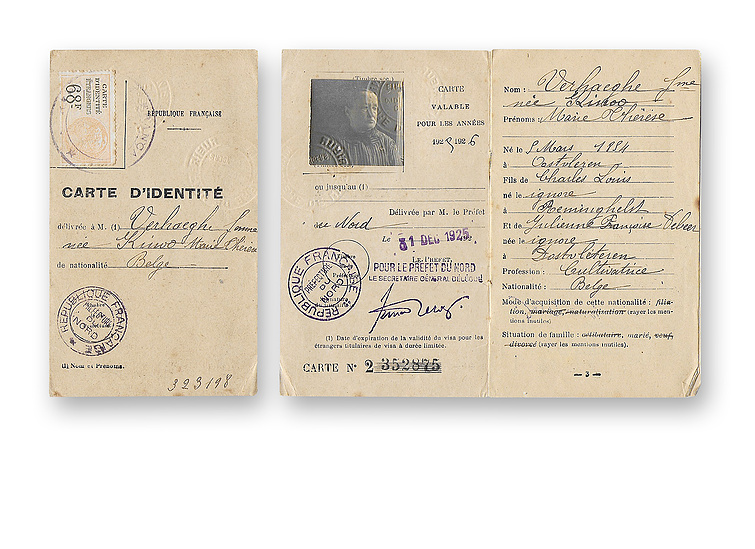 CARTE
D'IDENTITÉ
68F
RÉPUBLIQUE FRANÇAISE
CARTE D'IDENTITÉ
délivrée à M. (1) Verhaeghe femme
née Kinoo Marie Thérèse
de nationalité Belge
RÉPUBLIQUE FRANÇAISE
PRÉFECTURE DU NORD
(1) Nom et Prénoms.
323198
CARTE
VALABLE
POUR LES ANNÉES
1925 1926
ou jusqu'au (1)
Délivrée par M. le Préfet
du Nord
Le 31 DEC 1925
LE PRÉFET,
POUR LE PRÉFET DU NORD
LE SECRÉTAIRE GÉNÉRAL DÉLÉGUÉ
RÉPUBLIQUE FRANÇAISE
PRÉFECTURE DU NORD
(1) Date d'expiration de la validité du visa pour les
étrangers titulaires de visa à durée limitée.
CARTE N° 2 352875
Nom : Verhaeghe fme
née Kinoo
Prénoms : Marie Thérèse
Né le 8 Mars 1884
à Oostvleren
Fils de Charles Louis
né le ignore
à Reminghelst
Et de Julienne Françoise
née le ignore
à Oostvleteren
Profession : Cultivatrice
Nationalité : Belge
Mode d'acquisition de cette nationalité : filia-
tion, mariage, naturalisation (rayer les men-
tions inutiles)
Situation de famille : célibataire, marié, veuf,
divorcé (rayer les mentions inutiles).
— 3 —